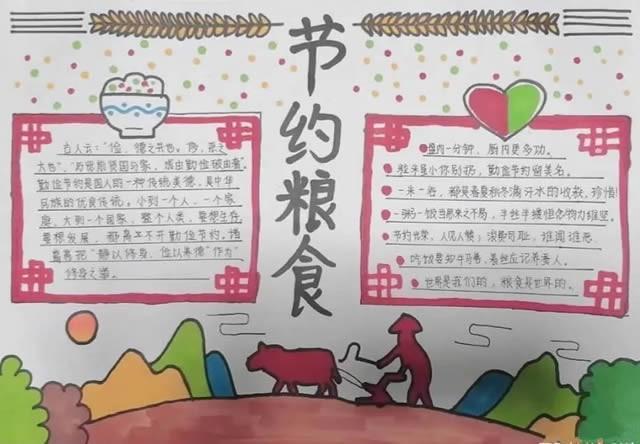 节约粮食
古人云："俭，德之共也。侈，恶之
大也"，"历览前贤国与家，成由勤俭破由奢"。
勤俭节约是国人的一种传统美德，是中华
民族的优良传统。小到一个人、一个家
庭，大到一个国家、整个人类，要想生存，
要想发展，都离不开勤俭节约。诸
葛亮把"静以修身、俭以养德"作为
修身之道。
盘内一分钟，厨内更多功。
粒米虽小你别扔，勤俭节约留美名。
一米一谷，都是春夏秋冬滴汗水的收款，珍惜!
一粥一饭当思来之不易，半丝半缕恒念物力维坚。
节约光荣，人见人赞；浪费可耻，谁闻谁恶。
吃饭要知牛马善，着丝应记养蚕人。
世界是我们的，粮食是世界的。